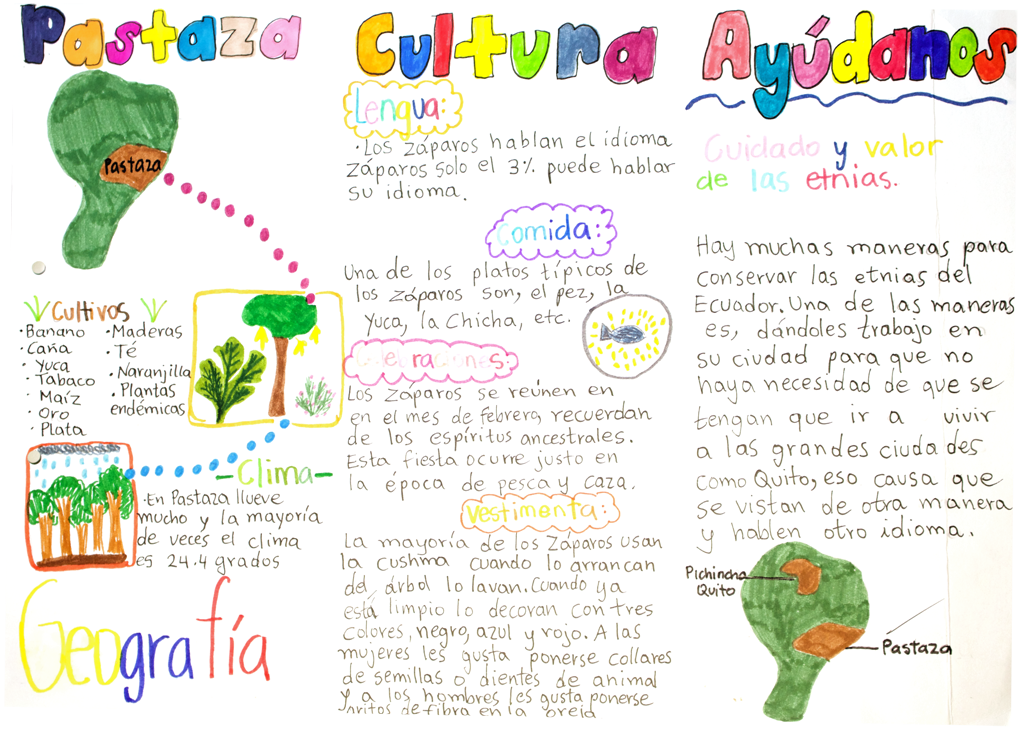 Pastaza
Pastaza
Cultivos
• Banano
• Caña
• Yuca
• Tabaco
• Maíz
• Oro
• Plata
• Maderas
• Té
• Naranjilla
• Plantas
endémicas
-Clima-
• En Pastaza llueve
mucho y la mayoría
de veces el clima
es 24.4 grados
Geografía
Cultura
Lengua:
• Los záparos hablan el idioma
záparos solo el 3% puede hablar
su idioma.
Comida:
Una de los platos típicos de
los záparos son, el pez, la
yuca, la Chicha, etc.
Celebraciones:
Los záparos se reúnen en
en el mes de febrero, recuerdan
de los espíritus ancestrales.
Esta fiesta ocurre justo en
la época de pesca y caza.
Vestimenta:
La mayoría de los Záparos usan
la cushma cuando lo arrancan
del árbol lo lavan. Cuando ya
está limpio lo decoran con tres
colores, negro, azul y rojo. A las
mujeres les gusta ponerse collares
de semillas o dientes de animal
y a los hombres les gusta ponerse
de fibra en la oreja
Ayúdanos
Cuidado y valor
de las etnias.
Hay muchas maneras para
conservar las etnias del
Ecuador. Una de las maneras
es, dándoles trabajo en
su ciudad para que no
haya necesidad de que se
tengan que ir a vivir
a las grandes ciudades
como Quito, eso causa que
se vistan de otra manera
y hablen otro idioma.
Pichincha
Quito
Pastaza